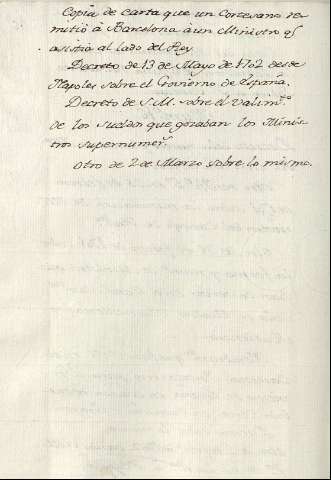 Copia de carta que un Cortesano re-
mitió à Barcelona à un Ministro q̃
asistia al lado del Rey
Decreto de 13 de Mayo de 1702 desde
Napoles sobre el Govierno de España.
Decreto de S. M. sobre el Valimto.
de los sueldos que gozaban los Minis
tros supernumers.
Otro de 2 de Marzo sobre lo mismo.